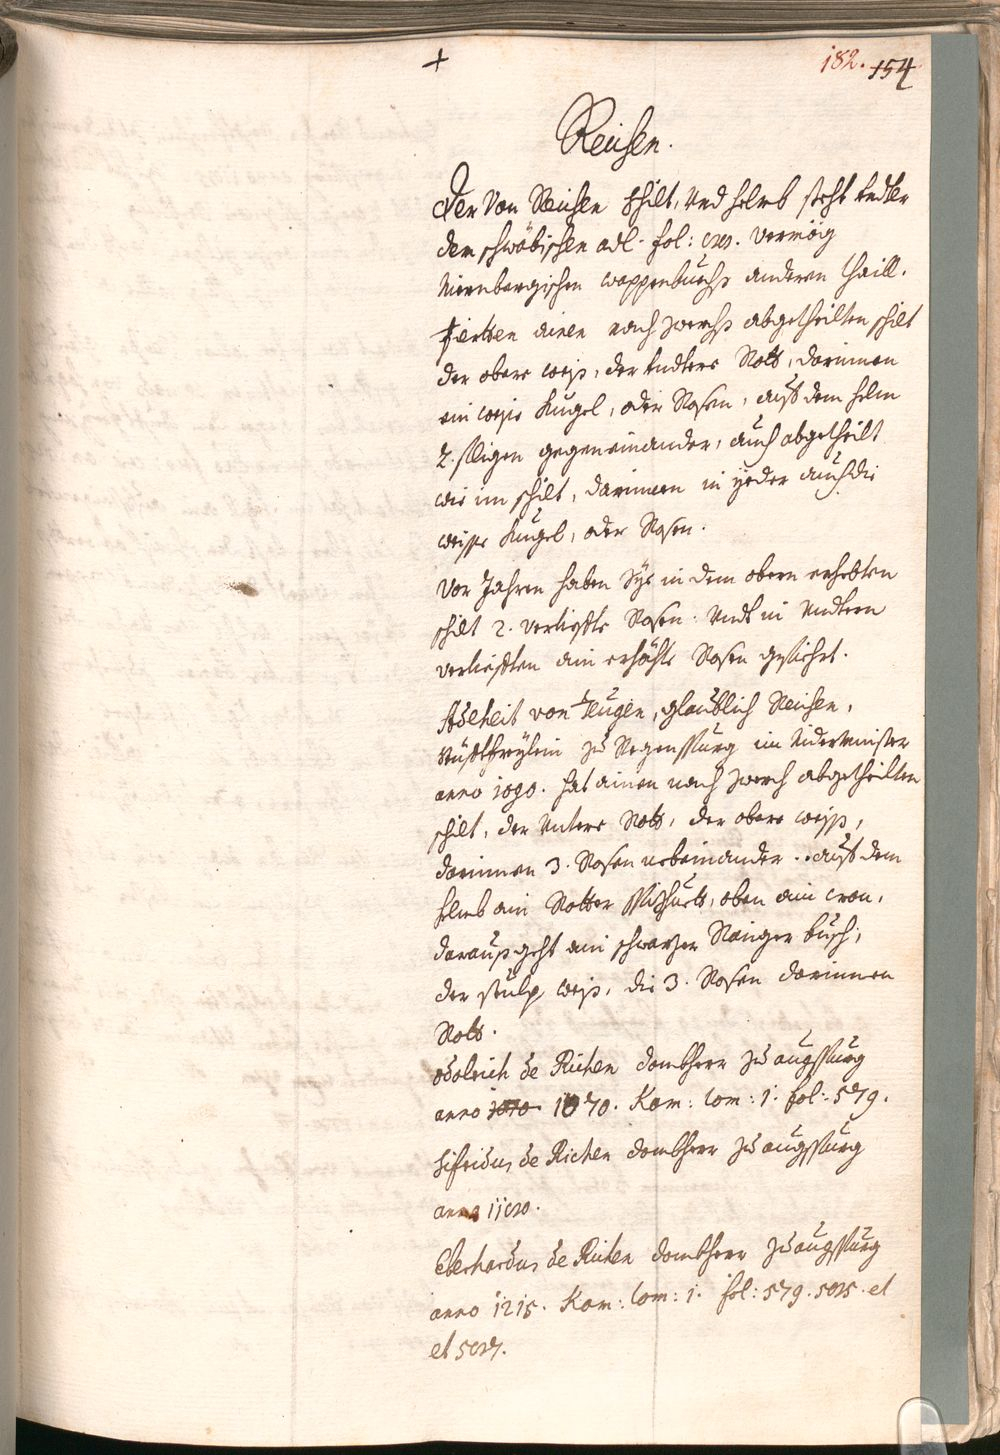 +
182. 154
Reichen.
Der Von Reichen schilt, Vnd helmb steht Vndter
dem schwäbischen adl. fol: Vermög
Nürnbergischen wappenbuechß anderen thaill.
fierdten ainen nach zwerchß abgetheilten schilt
der obere weiß, der Vndtere Roth, darinnen
ein weise Kugel, oder Rosen, auf dem helm
2. fligen gegeneinander, auch abgetheilt
wie im schilt, darinnen in yeder auch die
weisse Kugel, oder Rosen.
Vor Jahren haben Sye in dem obern erhebten
schilt 2. vertiefte Rosen. Vndt in Vndtern
vertieften ain erhöhte Rosen gefiehrt.
Adelheit von Teugen, glaublich Reichen,
Stüfftfreylein zu Regenspurg im Nidermünster
anno 1090. hat ainen nach zwerch abgetheilten
schilt, der Vntere Roth, der obere weiß,
darinnen 3. Rosen nebeinander. auf dem
helmb ain Rotter Spizhueth, oben ain cron,
darauß geht ain schwarzer Raiger busch,
der stulp weiß, die 3. Rosen darinnen
Roth.
Vdalrich de Richen dombherr zu augspurg
anno 1070. 1070. Kam: tom: 1. fol: 579.
Sifridus de Richen dombherr zu augspurg
anno
Eberhardus de Richen dombherr zu augspurg
anno 1215. Kam: tom: 1. fol: 579. et
et